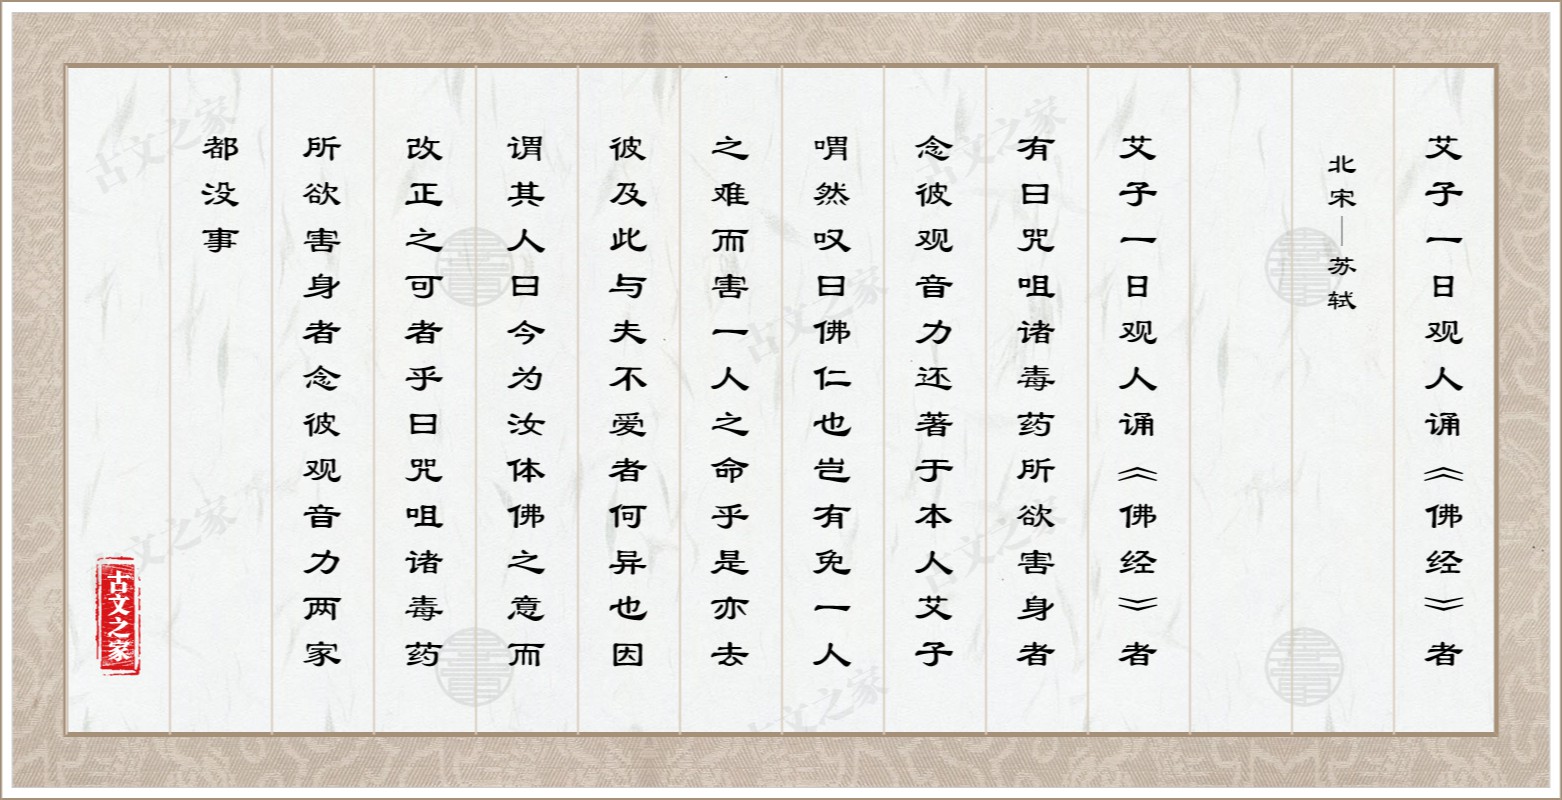 艾子一日观人诵《佛经》者
北宋—苏轼
艾子一日观人诵《佛经》者
有曰咒咀诸毒药所欲害身者
念彼观音力还著于本人艾子
喟然叹曰佛仁也岂有免一人
之难而害一人之命乎是亦去
彼及此与夫不爱者何异也因
谓其人曰今为汝体佛之意而
改正之可者乎曰咒咀诸毒药
所欲害身者念彼观音力两家
都没事
古文之家